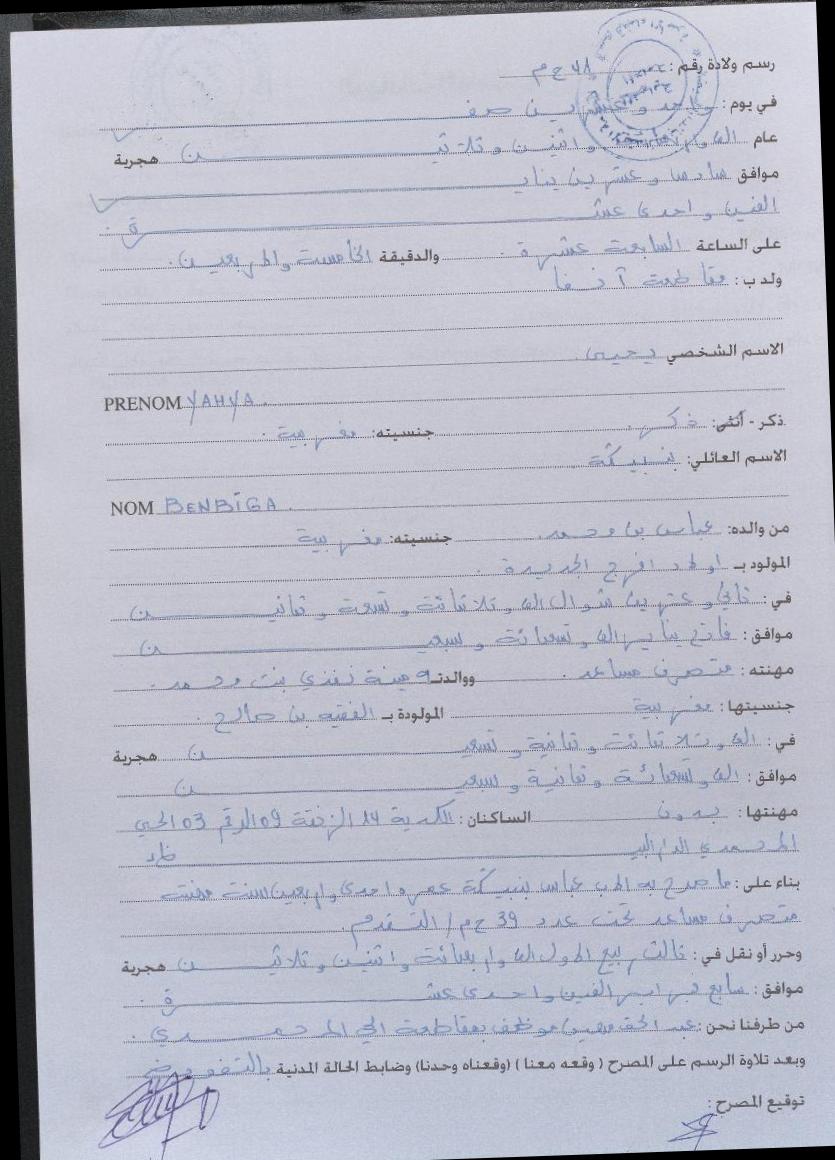 رسم ولادة رقم : 48 ح م
في يوم : واحد وعشرين صفر
عام الف واربعمائة واثنين وثلاثين هجرية
موافق سادس وعشرين يناير
الفين واحدى عشرة .
على الساعة السابعة عشرة . والدقيقة الخامسة والاربعين .
ولد ب : مقاطعة آنفا
الاسم الشخصي يحيى .
PRENOM YAHYA .
ذكر - أنثى : ذكر . جنسيته : مغربية .
الاسم العائلي : بنبيـﮕة
NOM BENBIGA .
من والده : عباس بن محمد . جنسيته : مغربية
المولود بـ اولاد افرج الجديدة .
في : ثاني وعشرين شوال الف وثلاثمائة وتسعة وثمانين
موافق : فاتح يناير الف وتسعمائة وسبعين
مهنته : متصرف مساعد . ووالدته مينة نفذي بنت محمد .
جنسيتها : مغربية المولودة بـ الفقيه بن صالح .
في : الف وثلاثمائة وثمانية وتسعين هجرية
موافق : الف وتسعمائة وثمانية وسبعين
مهنتها : بدون الساكنان : الكدية 14 الزنقة 09 الرقم 03 الحي
المحمدي الدار البيضاء
بناء على : ما صرح به الاب عباس بنبيـﮕة عمره احدى واربعين سنة مهنته
متصرف مساعد تحت عدد 39 ح م / التقدم .
وحرر أو نقل في : ثالث ربيع الاول الف واربعمائة واثنين وثلاثين هجرية
موافق : سابع فبراير الفين واحدى عشرة .
من طرفنا نحن : عبد الحق موظف بمقاطعة الحي المحمدي .
وبعد تلاوة الرسم على المصرح ( وقعه معنا ) (وقعناه وحدنا) وضابط الحالة المدنية بالتفويض
توقيع المصرح :